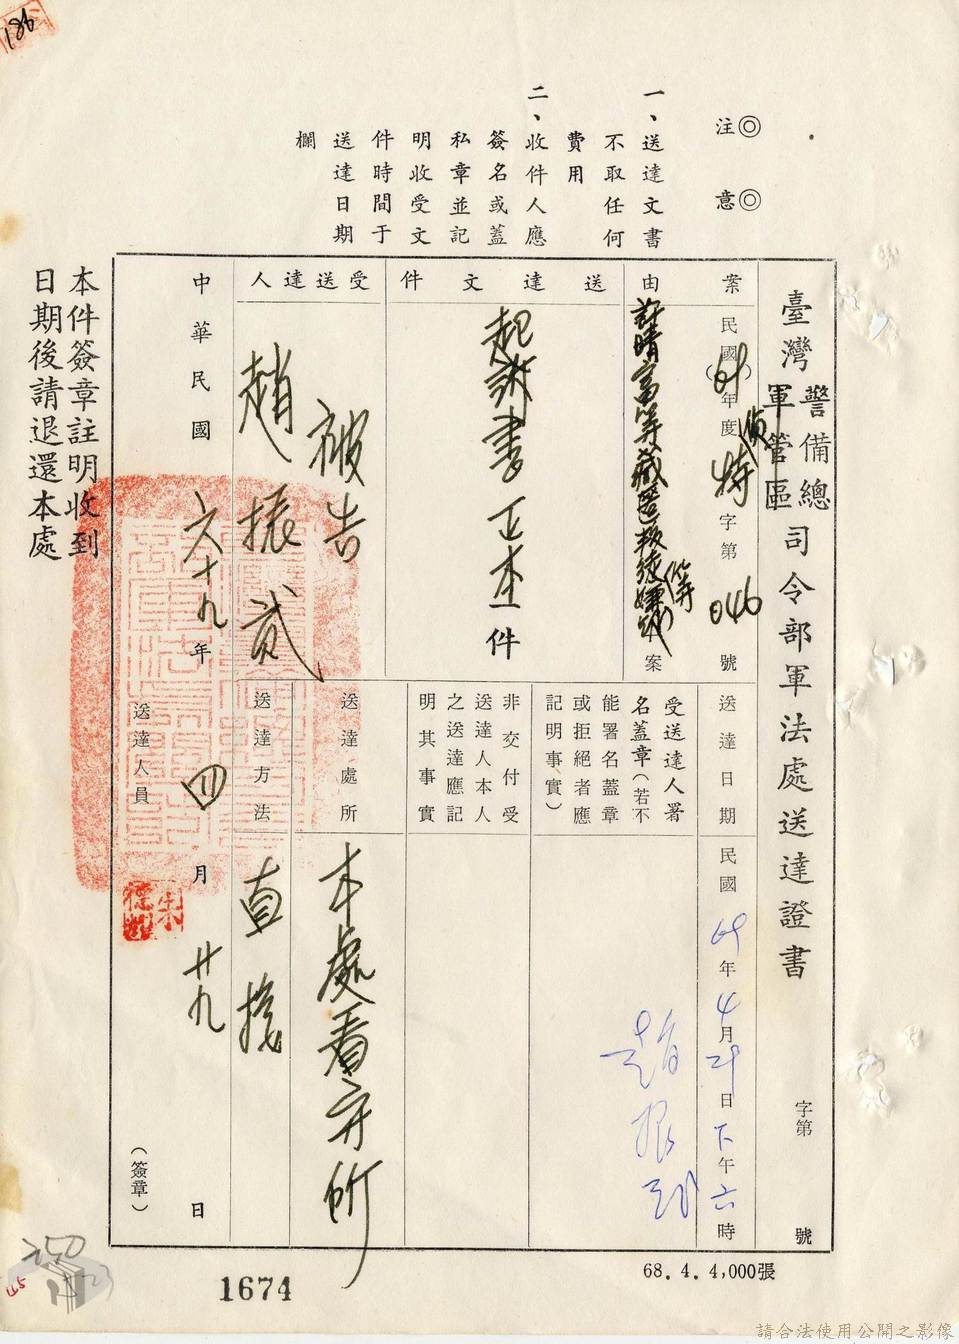 186
◎注意◎
一、送達文書
不取任何
費用
二、收件人應
簽名或蓋
私章並記
明收受文
件時間于
送達日期
欄
臺灣警備總軍管區司令部軍法處送達證書
字第 號
案由
民國(69)年度偵特字第046號
許晴富等藏匿叛徒嫌疑(等)案
送達文件
起訴書正本一件
受送達人
被告
趙振貳
送達日期
民國69年4月29日下午六時
受送達人署
名蓋章(若不
能署名蓋章
或拒絕者應
記明事實)
趙振貳
非交付受
送達人本人
之送達應記
明其事實
送達處所
本處看守所
送達方法
直接
中華民國六十九年四月廿九日
送達人員
(簽章)
本件簽章註明收到
日期後請退還本處
68.4.4,000張
1674
250
請合法使用公開之影像